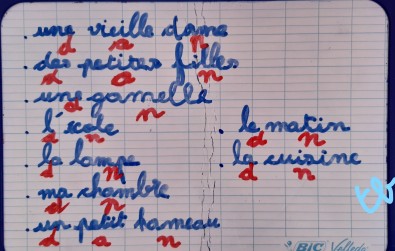 . une vieille dame
d a n
. des petites filles
d a n
. une gamelle
d n
. l'école
d n
. la lampe
d n
. ma chambre
d n
. un petit hameau
d a n
. le matin
d n
. la cuisine
d n
tb
BIC Velleda